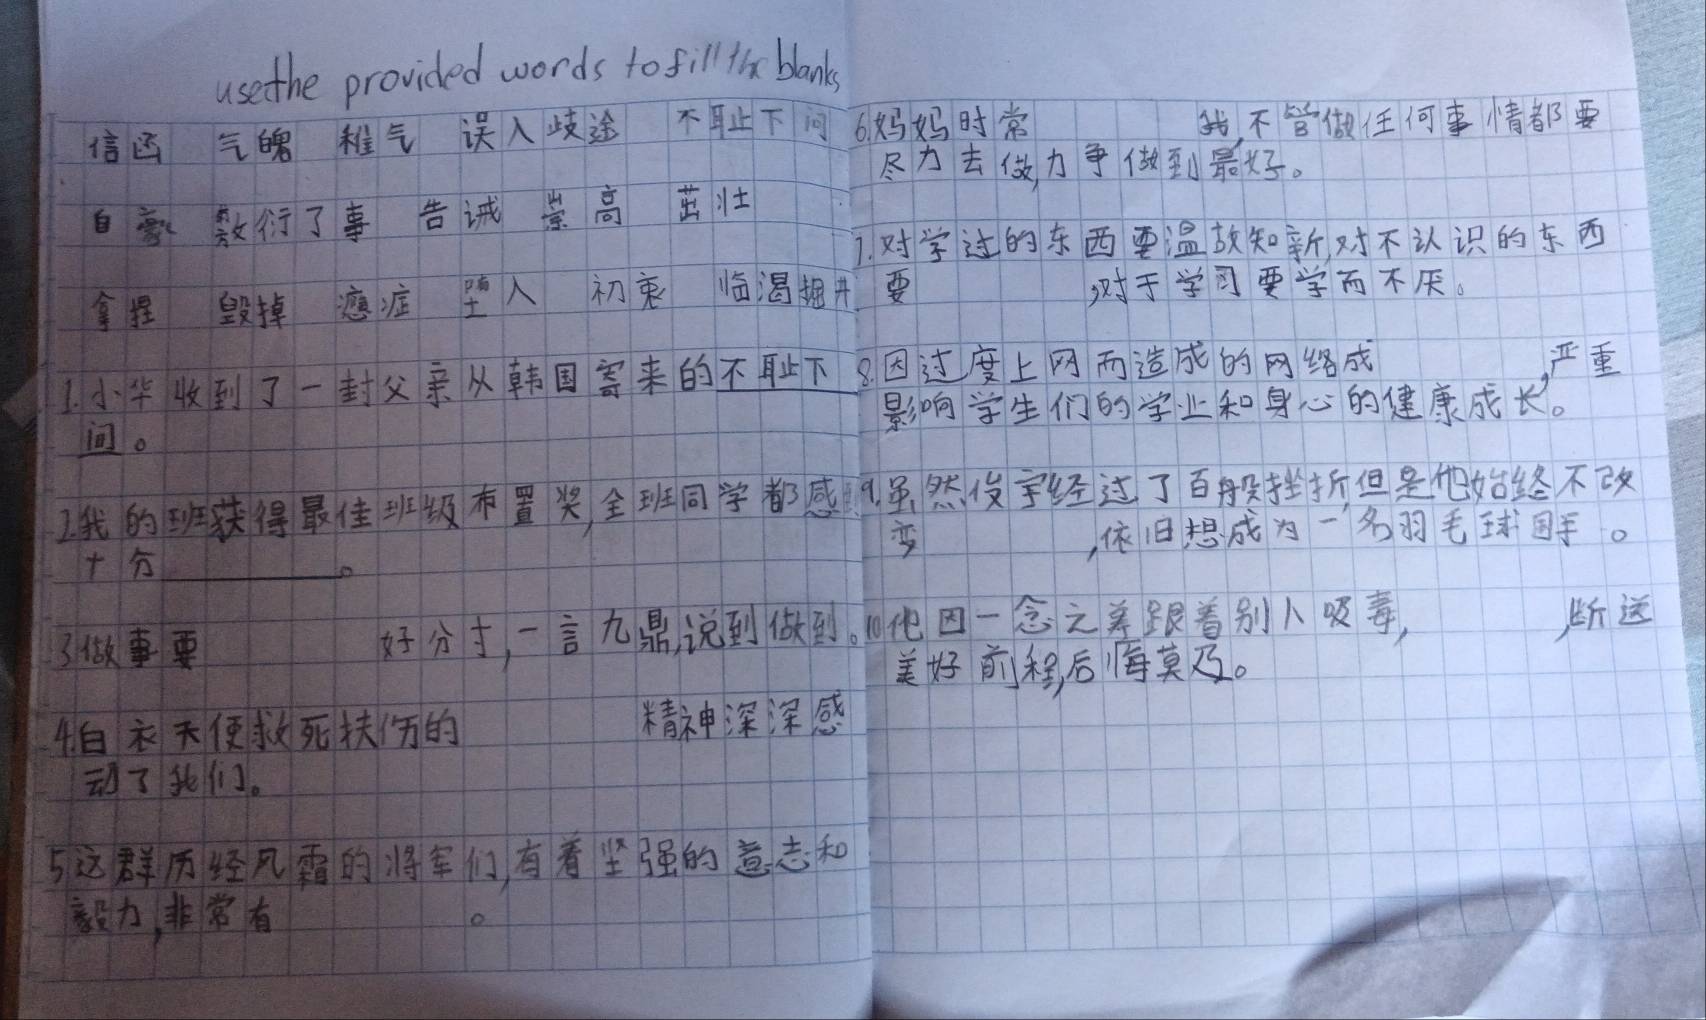 use the provided words to fill the blanks
信函 气魄 稚气 误入歧途 不耻下问
自豪 敷衍了事 告诫 崇高 茁壮
拿捏 毁掉 瘾症 堕入 初衷 临渴掘井
1.小华收到了一封父亲从韩国寄来的不耻下
问。
2.我的班获得最佳班级布置奖,全班同学都感
十分________。
3.做事要 好分寸,一言九鼎,说到做到。
4.白衣天使救死扶伤的 精神深深感
动了我们。
5.这群历经风霜的将军们,有着坚强的意志和
毅力,非常有 。
6.妈妈时常 我,不管做任何事情都要
尽力去做,力争做到最好。
7.对学过的东西要温故知新,对不认识的东西
要 ,对于学习要学而不厌。
8.因过度上网而造成的网络成 ,严重
影响学生们的学业和身心的健康成长。
9.虽然俊宇经过了百般挫折,但是他始终不改
变 ,依旧想成为一名羽毛球国手。
10.他因一念之差跟着别人吸毒, ,断送
美好前程,后悔莫及。